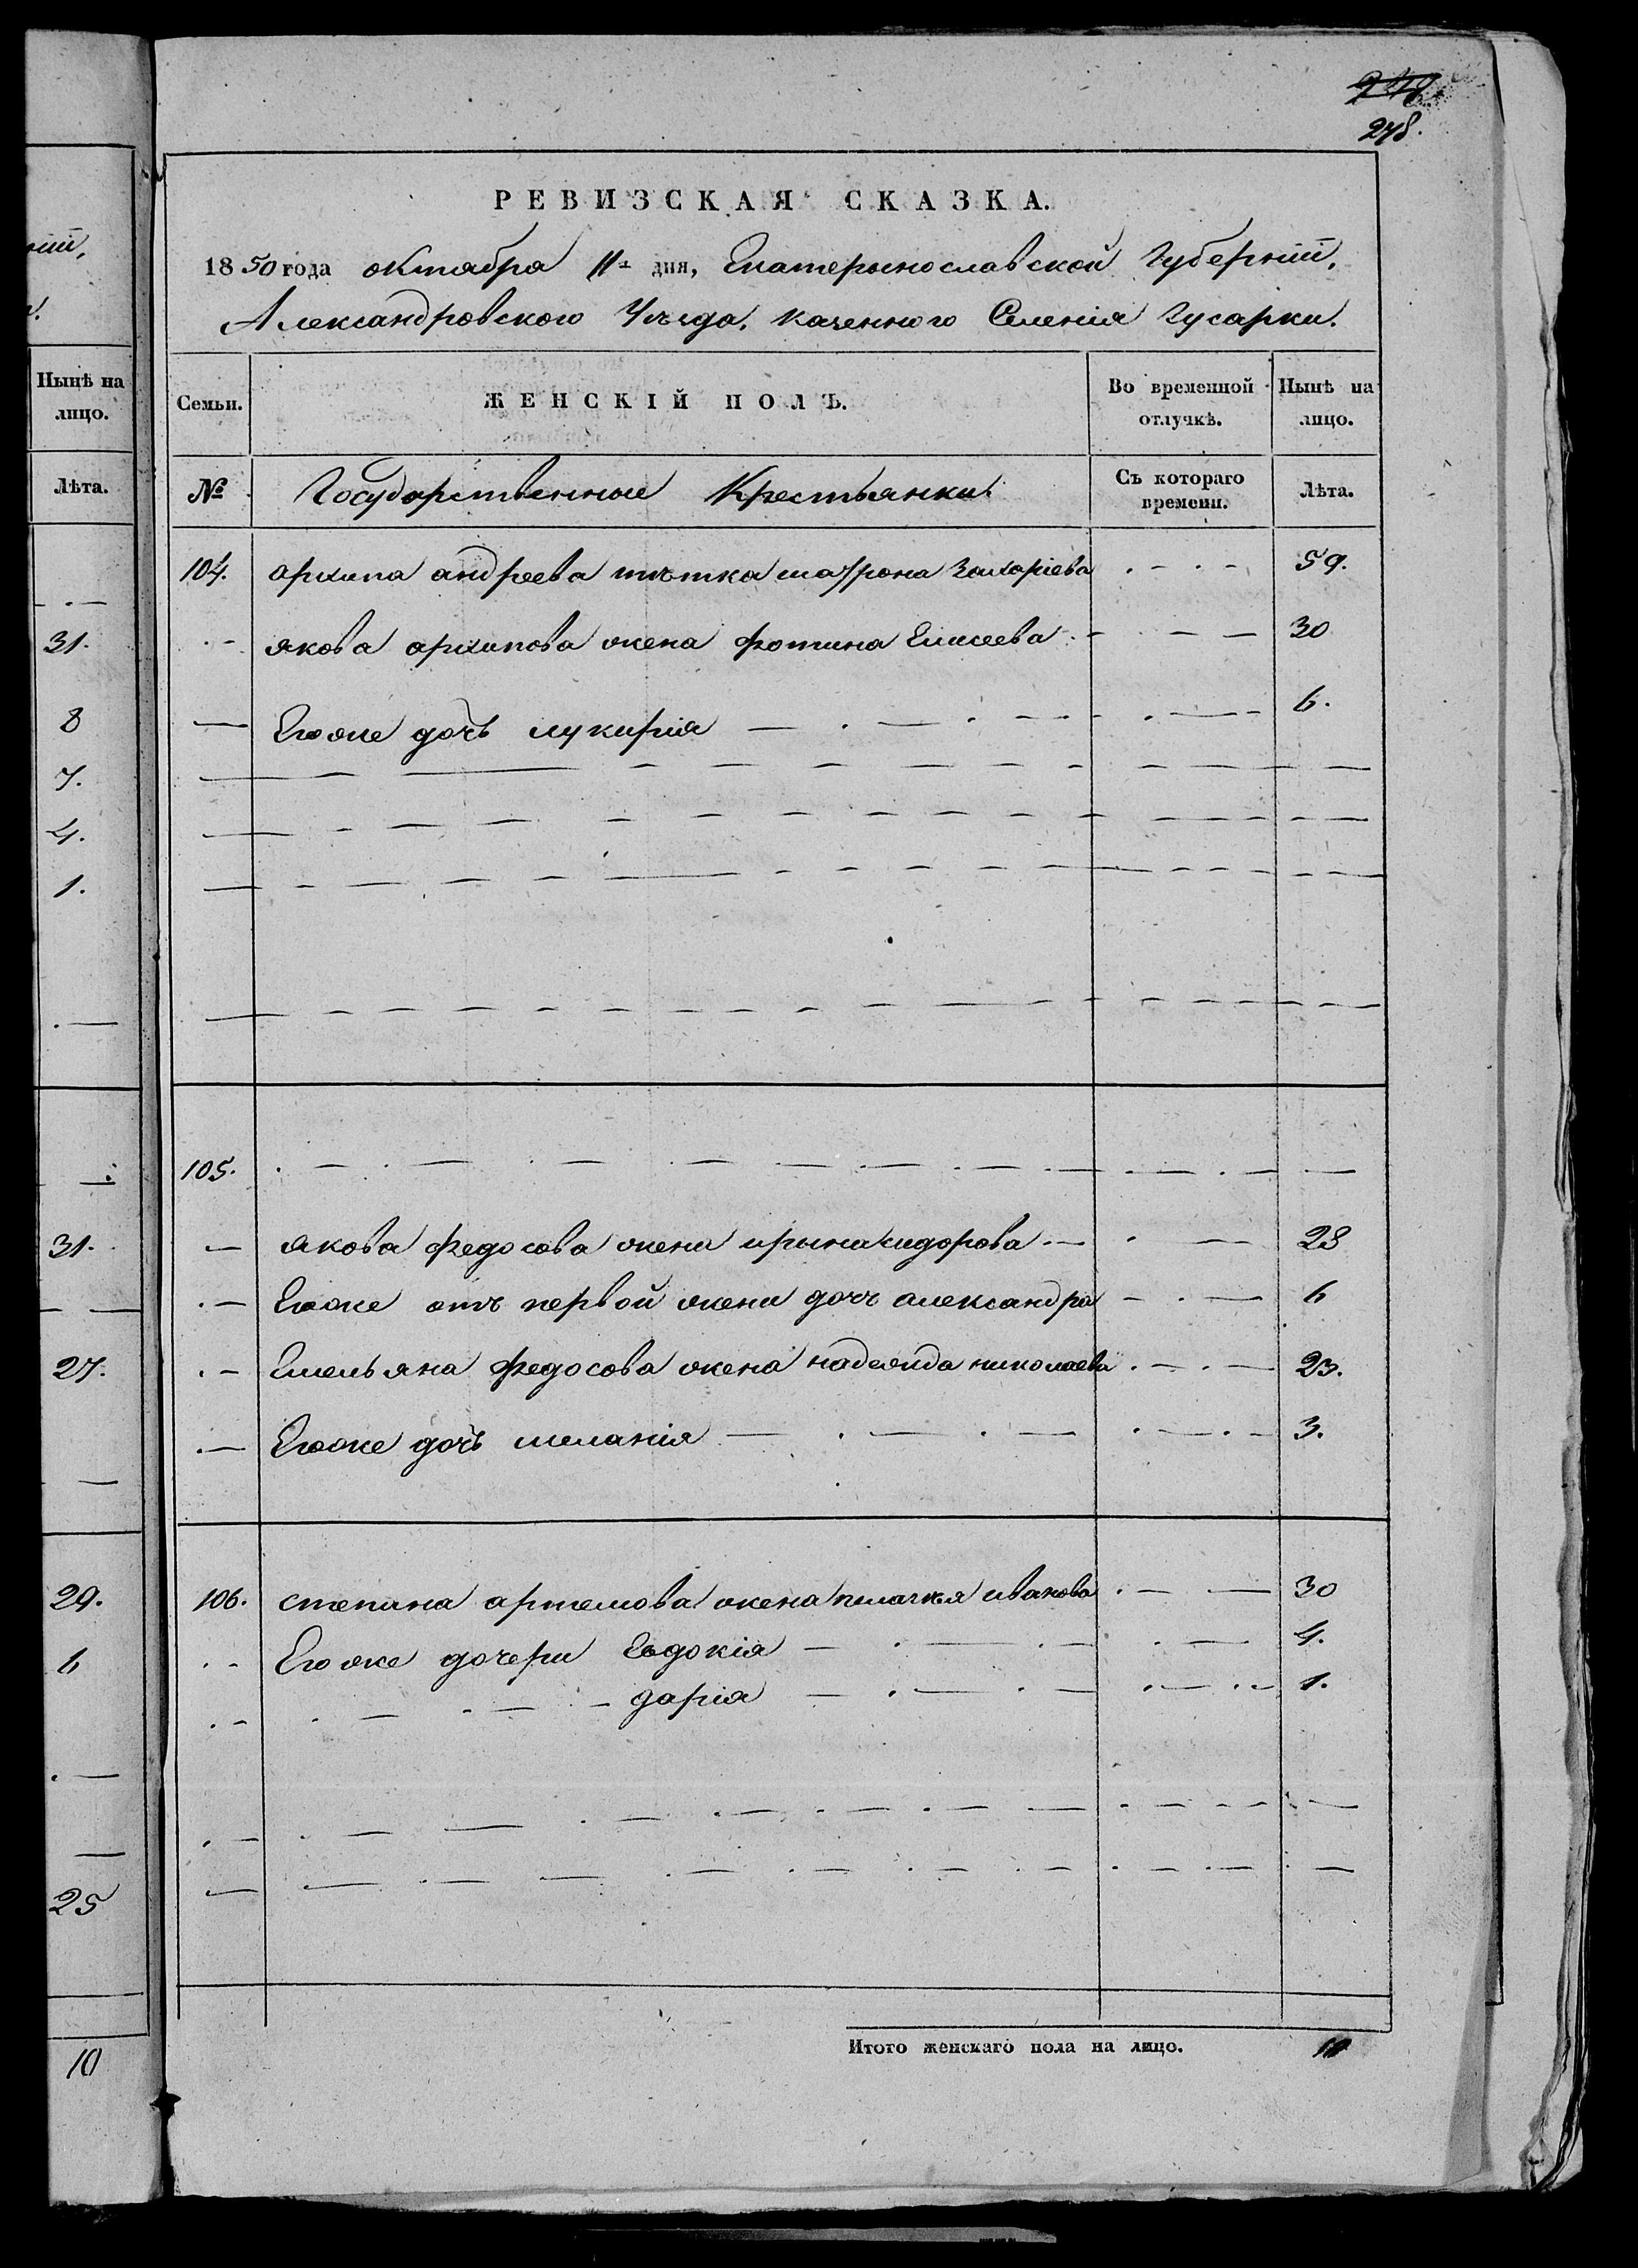 248.
РЕВИЗСКАЯ СКАЗКА.
1850 года октября 11го дня, Екатеринославской Губерніи,
Александровского Уѣзда, казенного Селенія Гусарки.
Нынѣ на лицо.
Семьи.
ЖЕНСКІЙ ПОЛЪ.
Во временной отлучкѣ.
Нынѣ на лицо.
Лѣта.
№
Государственные Крестьянки.
Съ котораго времени.
Лѣта.
104. архипа андреева тѣтка матрона Захаріева 59.
31. якова архипова жена фотина Елисеева 30
8 Егоже дочь лукирія 6.
7.
4.
1.
105.
31. якова федосова жена ирина сидорова 28
Егоже отъ первой жены дочь александра 6
27. Емельяна федосова жена надежда николаева 23.
Егоже дочь меланія 3.
29. 106. степана артемова жена пелагея иванова 30
6 Егоже дочери Евдокія 4.
дарія 1.
25
Итого женскаго пола на лицо. 10
10